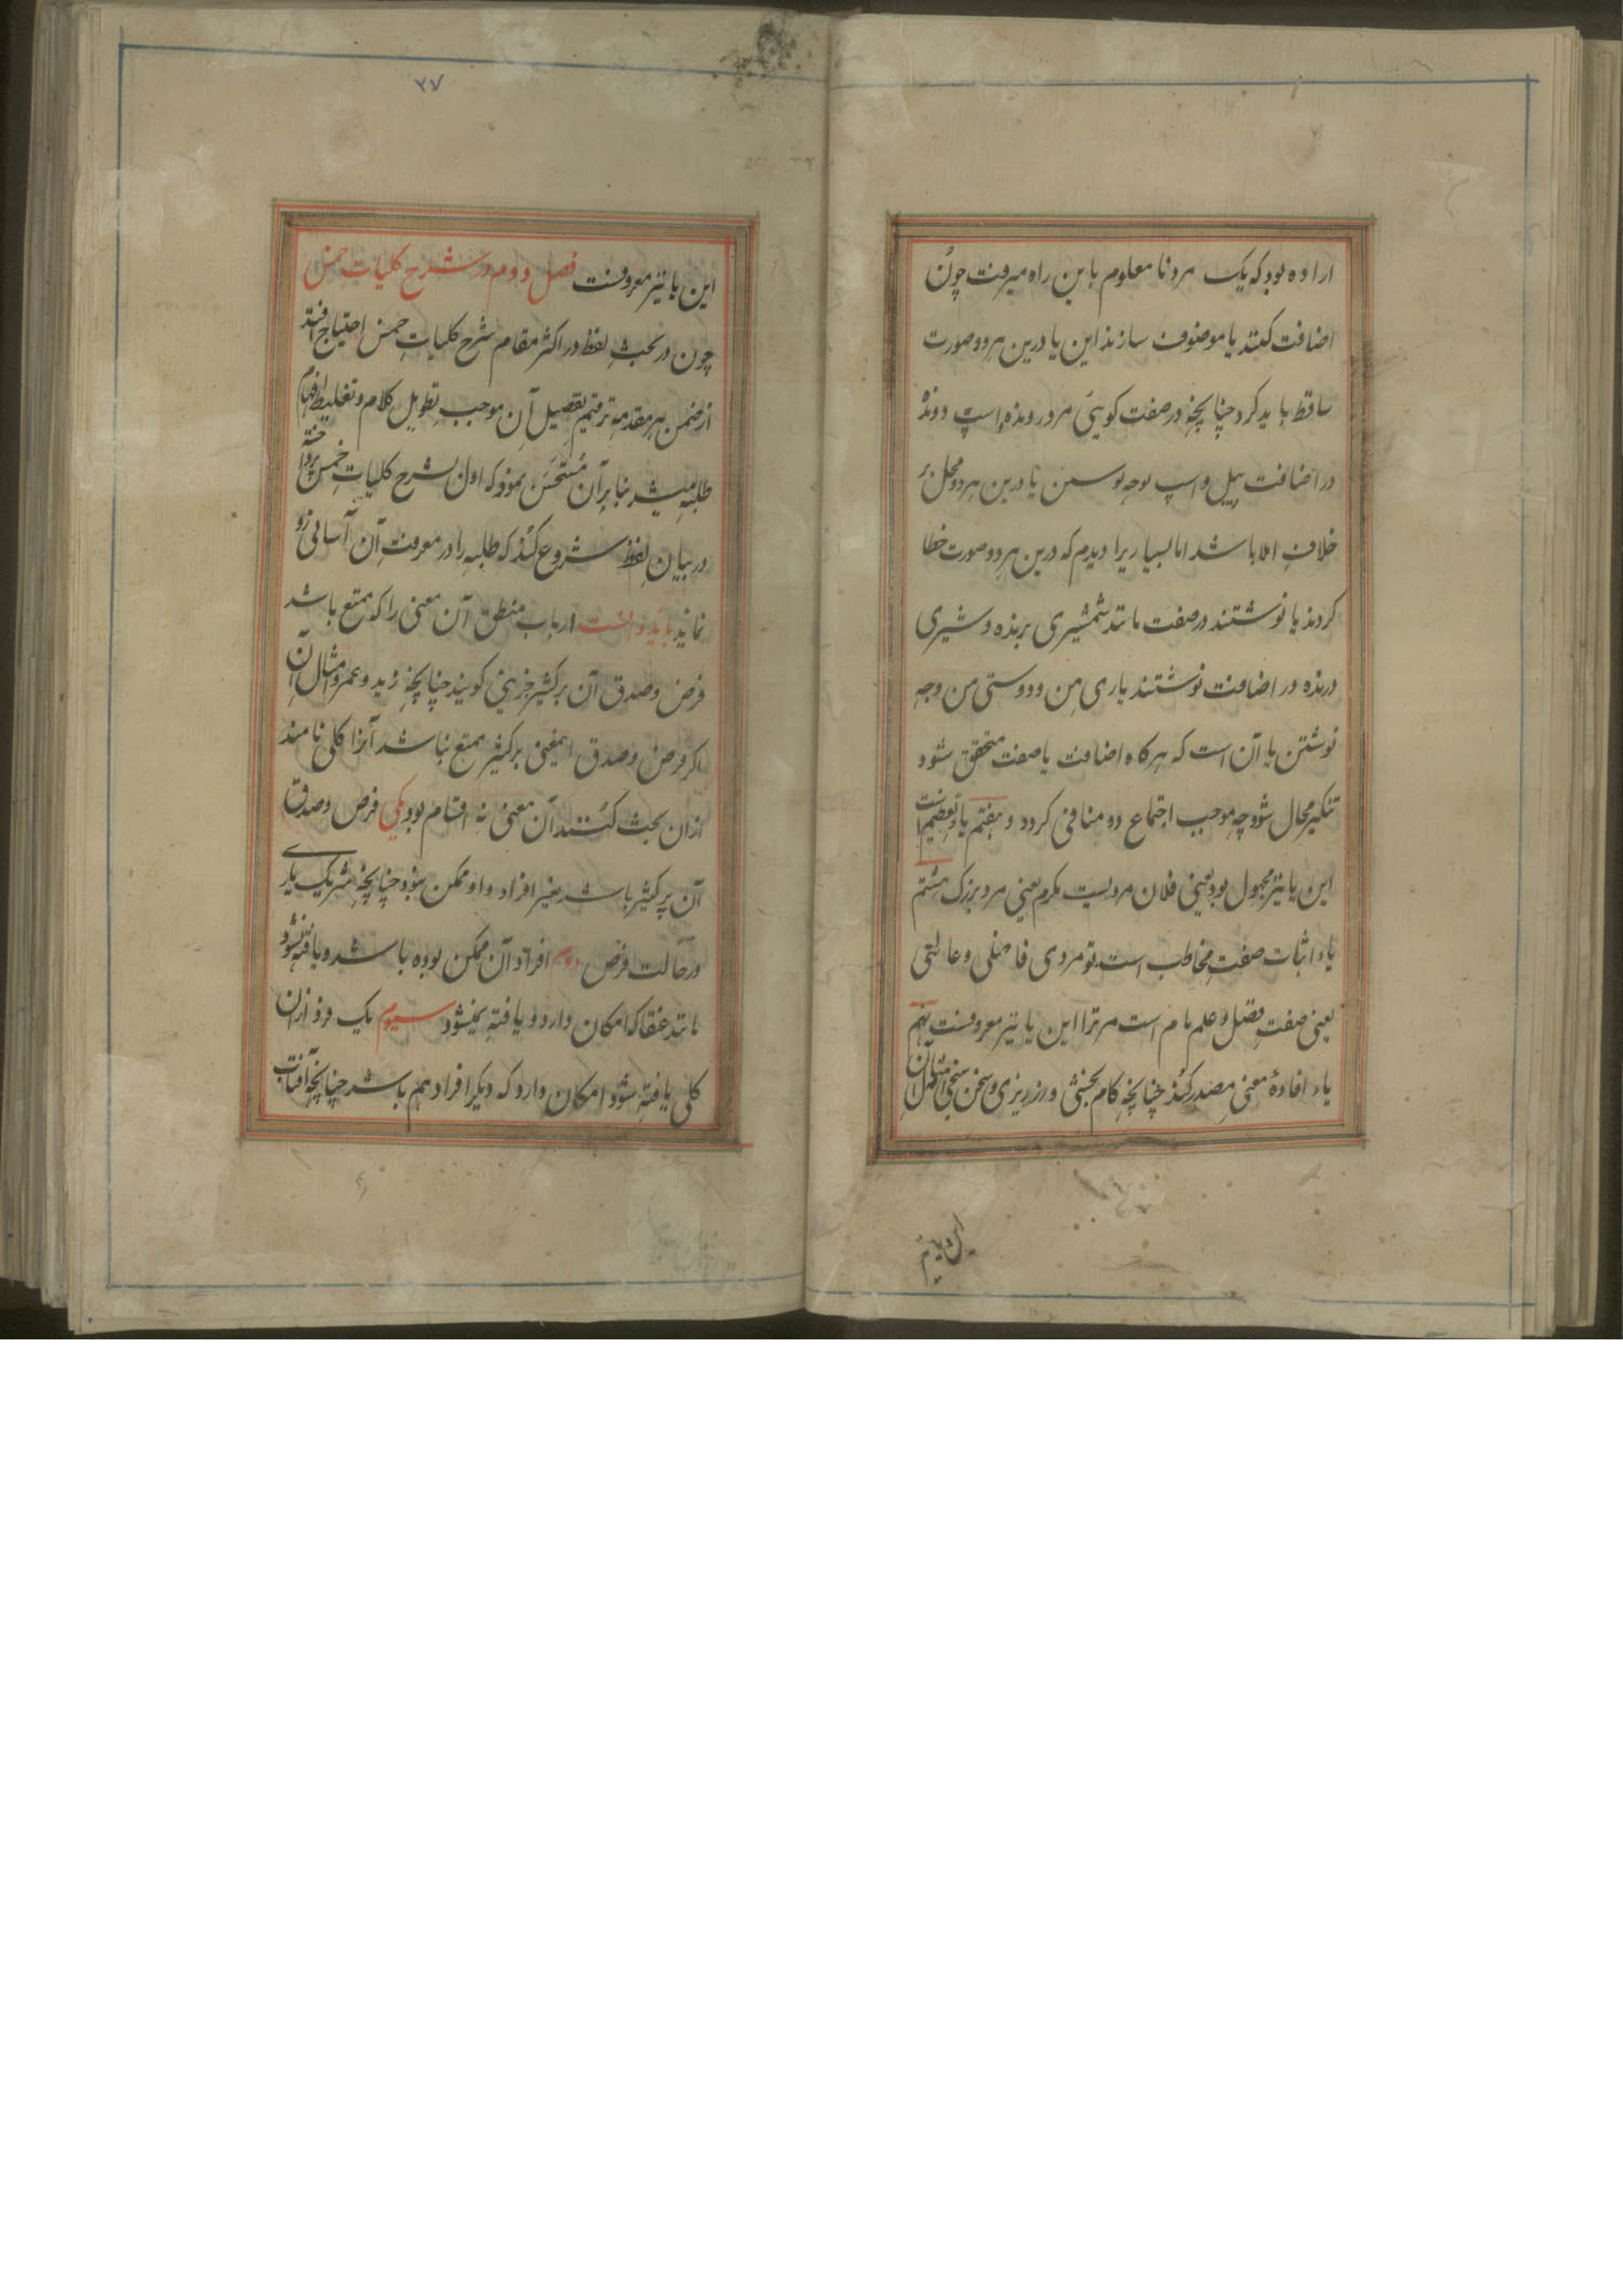 اراده بود که یک مرد نا معلوم باین راه میرفت چون
اضافت کنند یا موصوف سازند این یا درین هر دو صورت
ساقط باید کرد چنانچه در صفت کوئی مرد رونده و اسپ دونده
در اضافت پیل و اسپ نوشتن یا درین هر دو محل بر
خلاف املا باشد اما بسیاریرا دیدم که درین هر دو صورت خطا
کردند یا نوشتند در صفت مانند شمشیری برنده و شیری
درنده در اضافت نوشتند یاری من و دوستی من وجه
نوشتن یا آن است که هرکاه اضافت یا صفت متحقق شود
تنکیر محال شود چه موجب اجتماع دو منافی کردد و هفتم یاء تعظیم است
این یا نیز مجهول بود یعنی فلان مردیست مکرم یعنی مرد بزرک هشتم
یاء اثبات صفت مخاطب است تو مردی فاضلی و عالمی
یعنی صفت فضل و علم است مر ترا این یا نیز معروفست نهم
یاء افادهٔ معنی مصدر کند چنانچه کام بخشی و زرریزی و سخن سنجی و امثال آن
۳۷
این یا نیز معروفست فصل دوم در شرح کلیات خمس
چون در بحث لفظ در اکثر مقام شرح کلیات خمس احتیاج افتد
از ضمن هر مقدمه ترقیم تفصیل آن موجب تطویل کلام و تغلیط افهام
طلبه میشد بنا بر آن مستحسن نمود که اول بشرح کلیات خمس پرداخته
در بیان لفظ شروع کند که طلبه را در معرفت آن آسانی رو
نماید باید دانست ارباب منطق آن معنی را که ممتنع باشد
فرض و صدق آن بر کثیر جزیی کویند چنانچه زید و عمرو و امثال آن
اکر فرض و صدق ایمعنی بر کثیر ممتنع نباشد آنرا کلی نامند
ازان بحث کنند آن معنی نه اقسام بود یکی فرض و صدق
آن بر کثیر باشد بغیر افراد و او ممکن نبود چنانچه شریک باری
در حالت فرض دوم افراد آن ممکن بوده باشد و یافته نشود
مانند عنقا که امکان دارد و یافته نمیشود سیوم یک فرد ازان
کلی یافته شود امکان دارد که دیکر افراد هم باشد چنانچه آفتاب